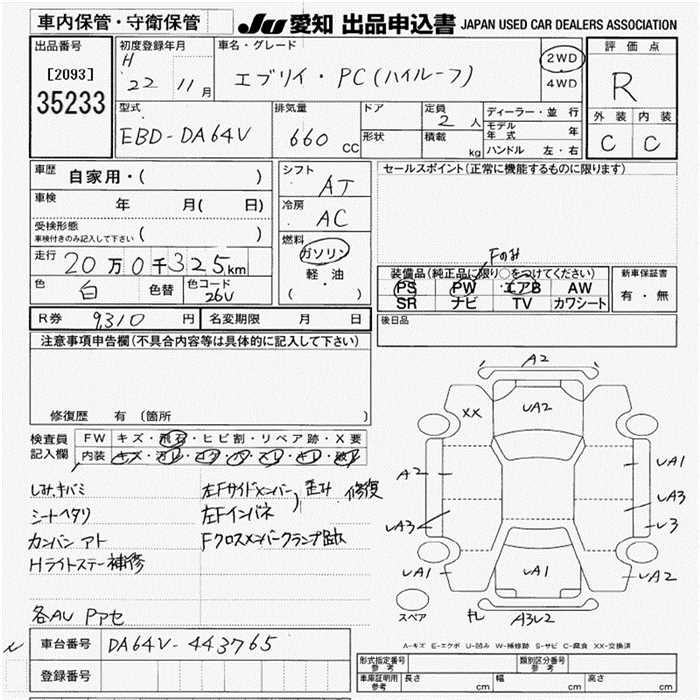 車内保管・守衛保管
JU 愛知 出品申込書 JAPAN USED CAR DEALERS ASSOCIATION
出品番号
[2093]
35233
初度登録年月
H
22 11 月
車名・グレード
エブリイ・PC(ハイルーフ)
2WD
4WD
評価点
R
外装 内装
C C
型式
EBD-DA64V
排気量
660 cc
ドア
形状
定員
2 人
積載
kg
ディーラー・並行
モデル年式 年
ハンドル 左・右
車歴
自家用・( )
車検
年 月( 日)
受検形態
車検付きのみ記入して下さい ( )
走行
20万0千325km
色
白
色替
色コード
26V
シフト
AT
冷房
AC
燃料
ガソリン
軽・油
( )
セールスポイント(正常に機能するものに限ります)
Fのみ
装備品(純正品に限り○をつけてください)
PS PW エアB AW
SR ナビ TV カワシート
新車保証書
有・無
後日品
R券 9,310 円
名変期限 月 日
注意事項申告欄(不具合内容等は具体的に記入して下さい)
修復歴 有 (箇所 )
検査員記入欄
FW キズ・飛石・ヒビ割・リペア跡・X要
内装 キズ・汚レ・コゲ・穴・スレ・キレ・破レ
しみ、キバミ
シートヘタリ
カンバンアト
Hライトステー補修
各AU Pアセ
左Fサイドメンバー
左Fインパネ
歪み 修復
Fクロスメンバークランプ跡大
A2
XX
UA2
A2
UA1
UA3
UA3
U3
UA1
UA1
UA2
A3U2
スペア
A-キズ E-エクボ U-凹み W-補修跡 S-サビ C-腐食 XX-交換済
車台番号 DA64V-443765
登録番号
形式指定番号
参考
類別区分番号
参考
車庫証明用
参考
長さ cm
幅 cm
高さ cm